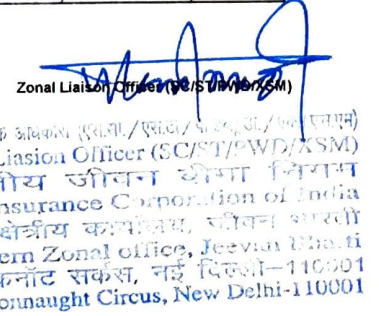 Zonal Liaison Officer (SC/ST/PWD/XSM)
Liasion Officer (SC/ST/PWD/XSM)
जीवन बीमा निगम
nsurance Corporation of India
क्षेत्रीय कार्यालय, जीवन भारती
ern Zonal office, Jeevan Bharti
कनॉट सर्कस, नई दिल्ली-110001
onnaught Circus, New Delhi-110001